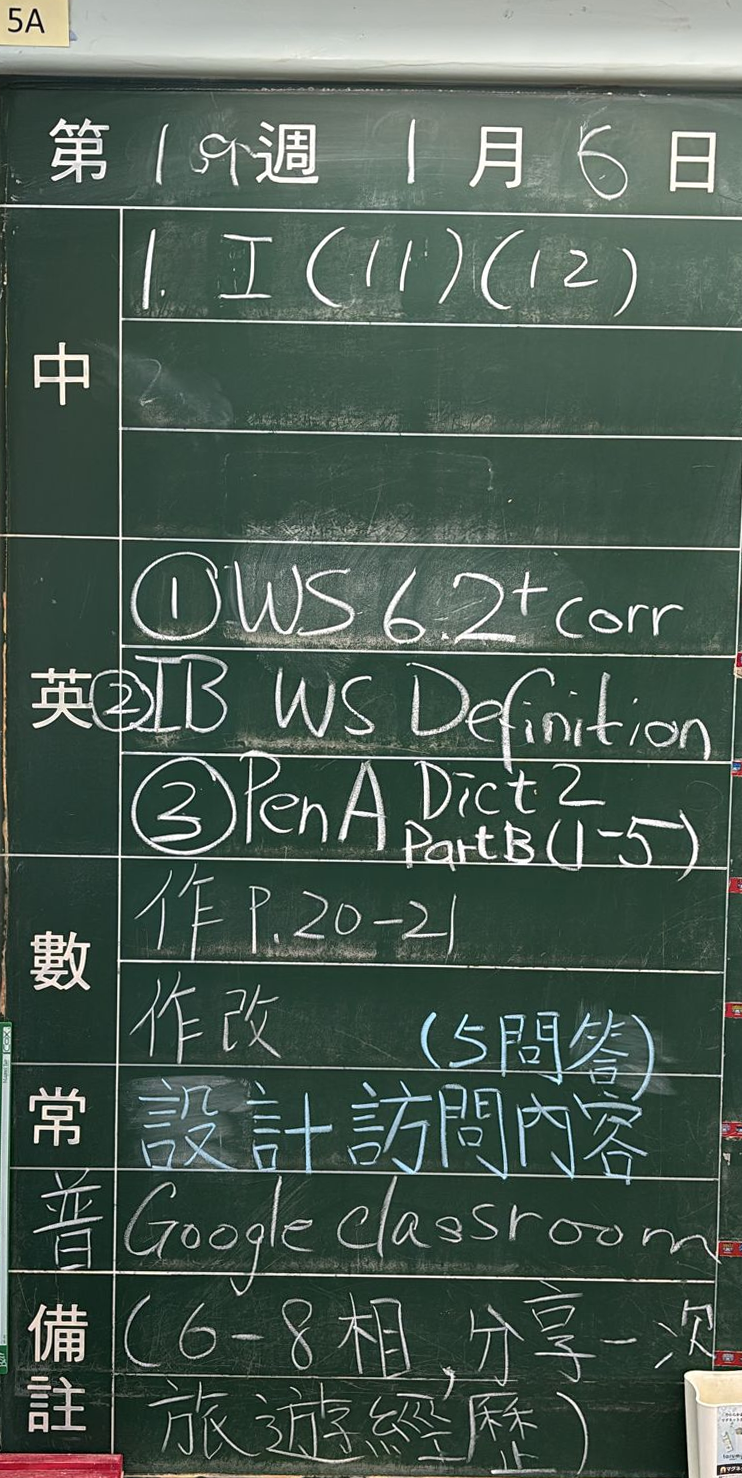 5A
第19週 1月6日
中
1. I (11)(12)
英
①WS 6.2+corr
②IB WS Definition
③Pen A Dict 2
Part B (1-5)
數
作 P.20-21
作改
(5問答)
常
設計訪問內容
普
Google classroom
備註
(6-8相,分享一次
旅遊經歷)